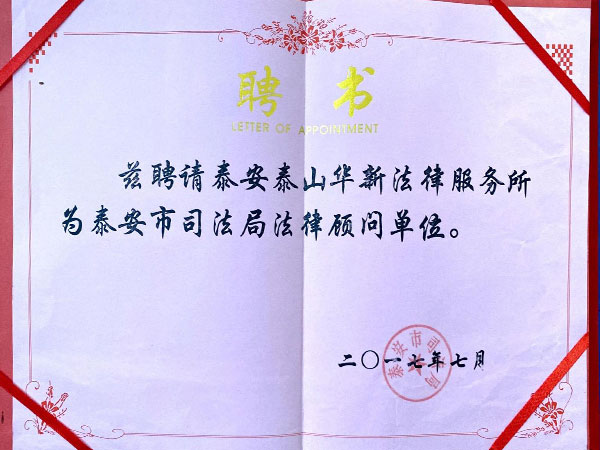 聘书
LETTER OF APPOINTMENT
兹聘请泰安泰山华新法律服务所
为泰安市司法局法律顾问单位。
二〇一七年七月
泰安市司法局